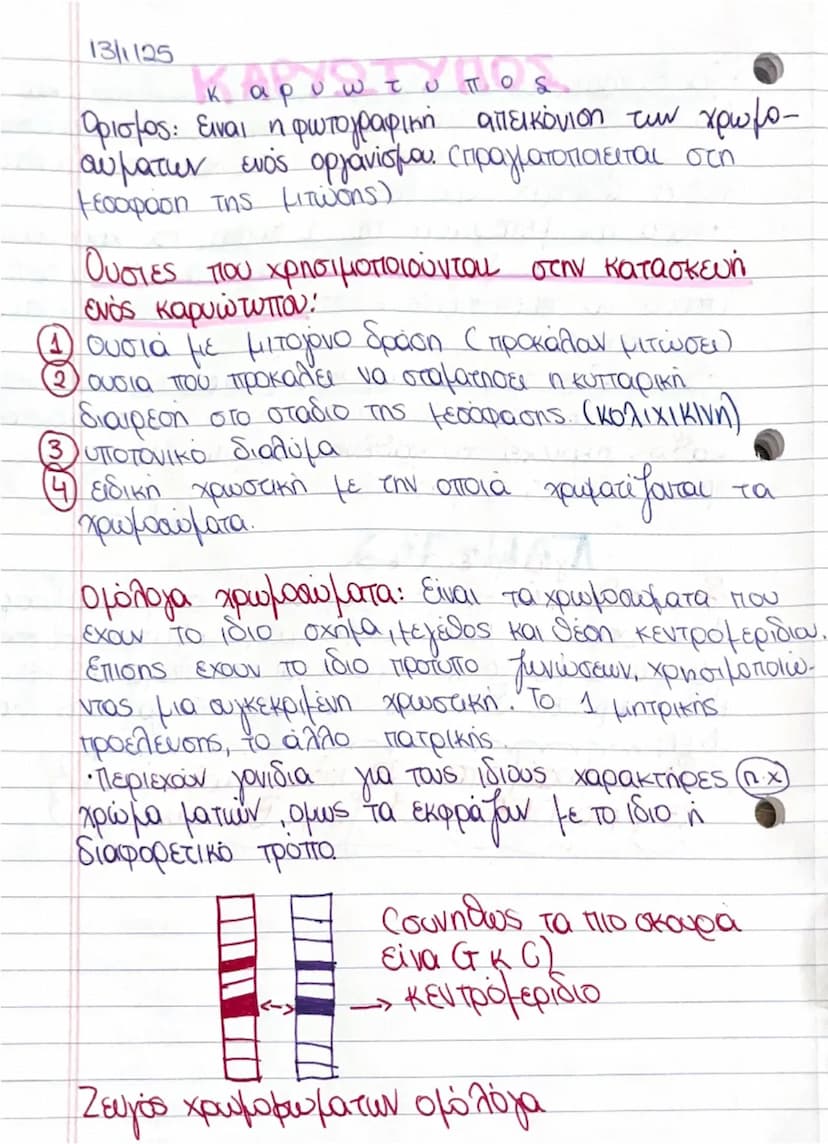 13/1/25
ΚΑΡΥΩΤΥΠΟΣ
καρυωτυπος
Ορισμος: Ειναι η φωτογραφική απεικόνιση των χρωμο-
σωματων ενός οργανίσμου. (πραγματοποιειται στη
μεσοφαση της μιτώσης)
Ουσιες που χρησιμοποιούνται στην κατασκευή
ενός καρυώτυπου!
1 ουσιά με μιτογόνο δράση (προκάλουν μιτώσει)
2 ουσια που προκαλει να σταματησει η κυτταρική
διαιρεση στο σταδιο της μεσόφασης. (κολιχικινη)
3 υποτονικό διαλύμα
4 ειδική χρωστική με την οποιά χρωματίζονται τα
χρωμοσώματα.
Ομόλογα χρωμοσώματα: Είναι τα χρωμοσωματα που
εχουν το ιδιο σχημα, μεγέθος και θέση κεντρομεριδιου.
Επισης εχουν το ίδιο προτυπο ζωνώσεων, χρησιμοποιώ-
ντας μια συγκεκριμένη χρωστική. Το 1 μητρικής
προέλευσης, το άλλο πατρικής.
·Περιεχούν γονίδια για τους ιδιούς χαρακτήρες π.χ
χρώμα ματιών, ομως τα εκφράζουν με το ιδιο ή
διαφορετικό τρόπο.
(συνηθως τα πιο σκουρα
είνα G κ C)
<--> → κεντρόμεριδιο
Ζευγός χρωμοσωματων ομόλογα